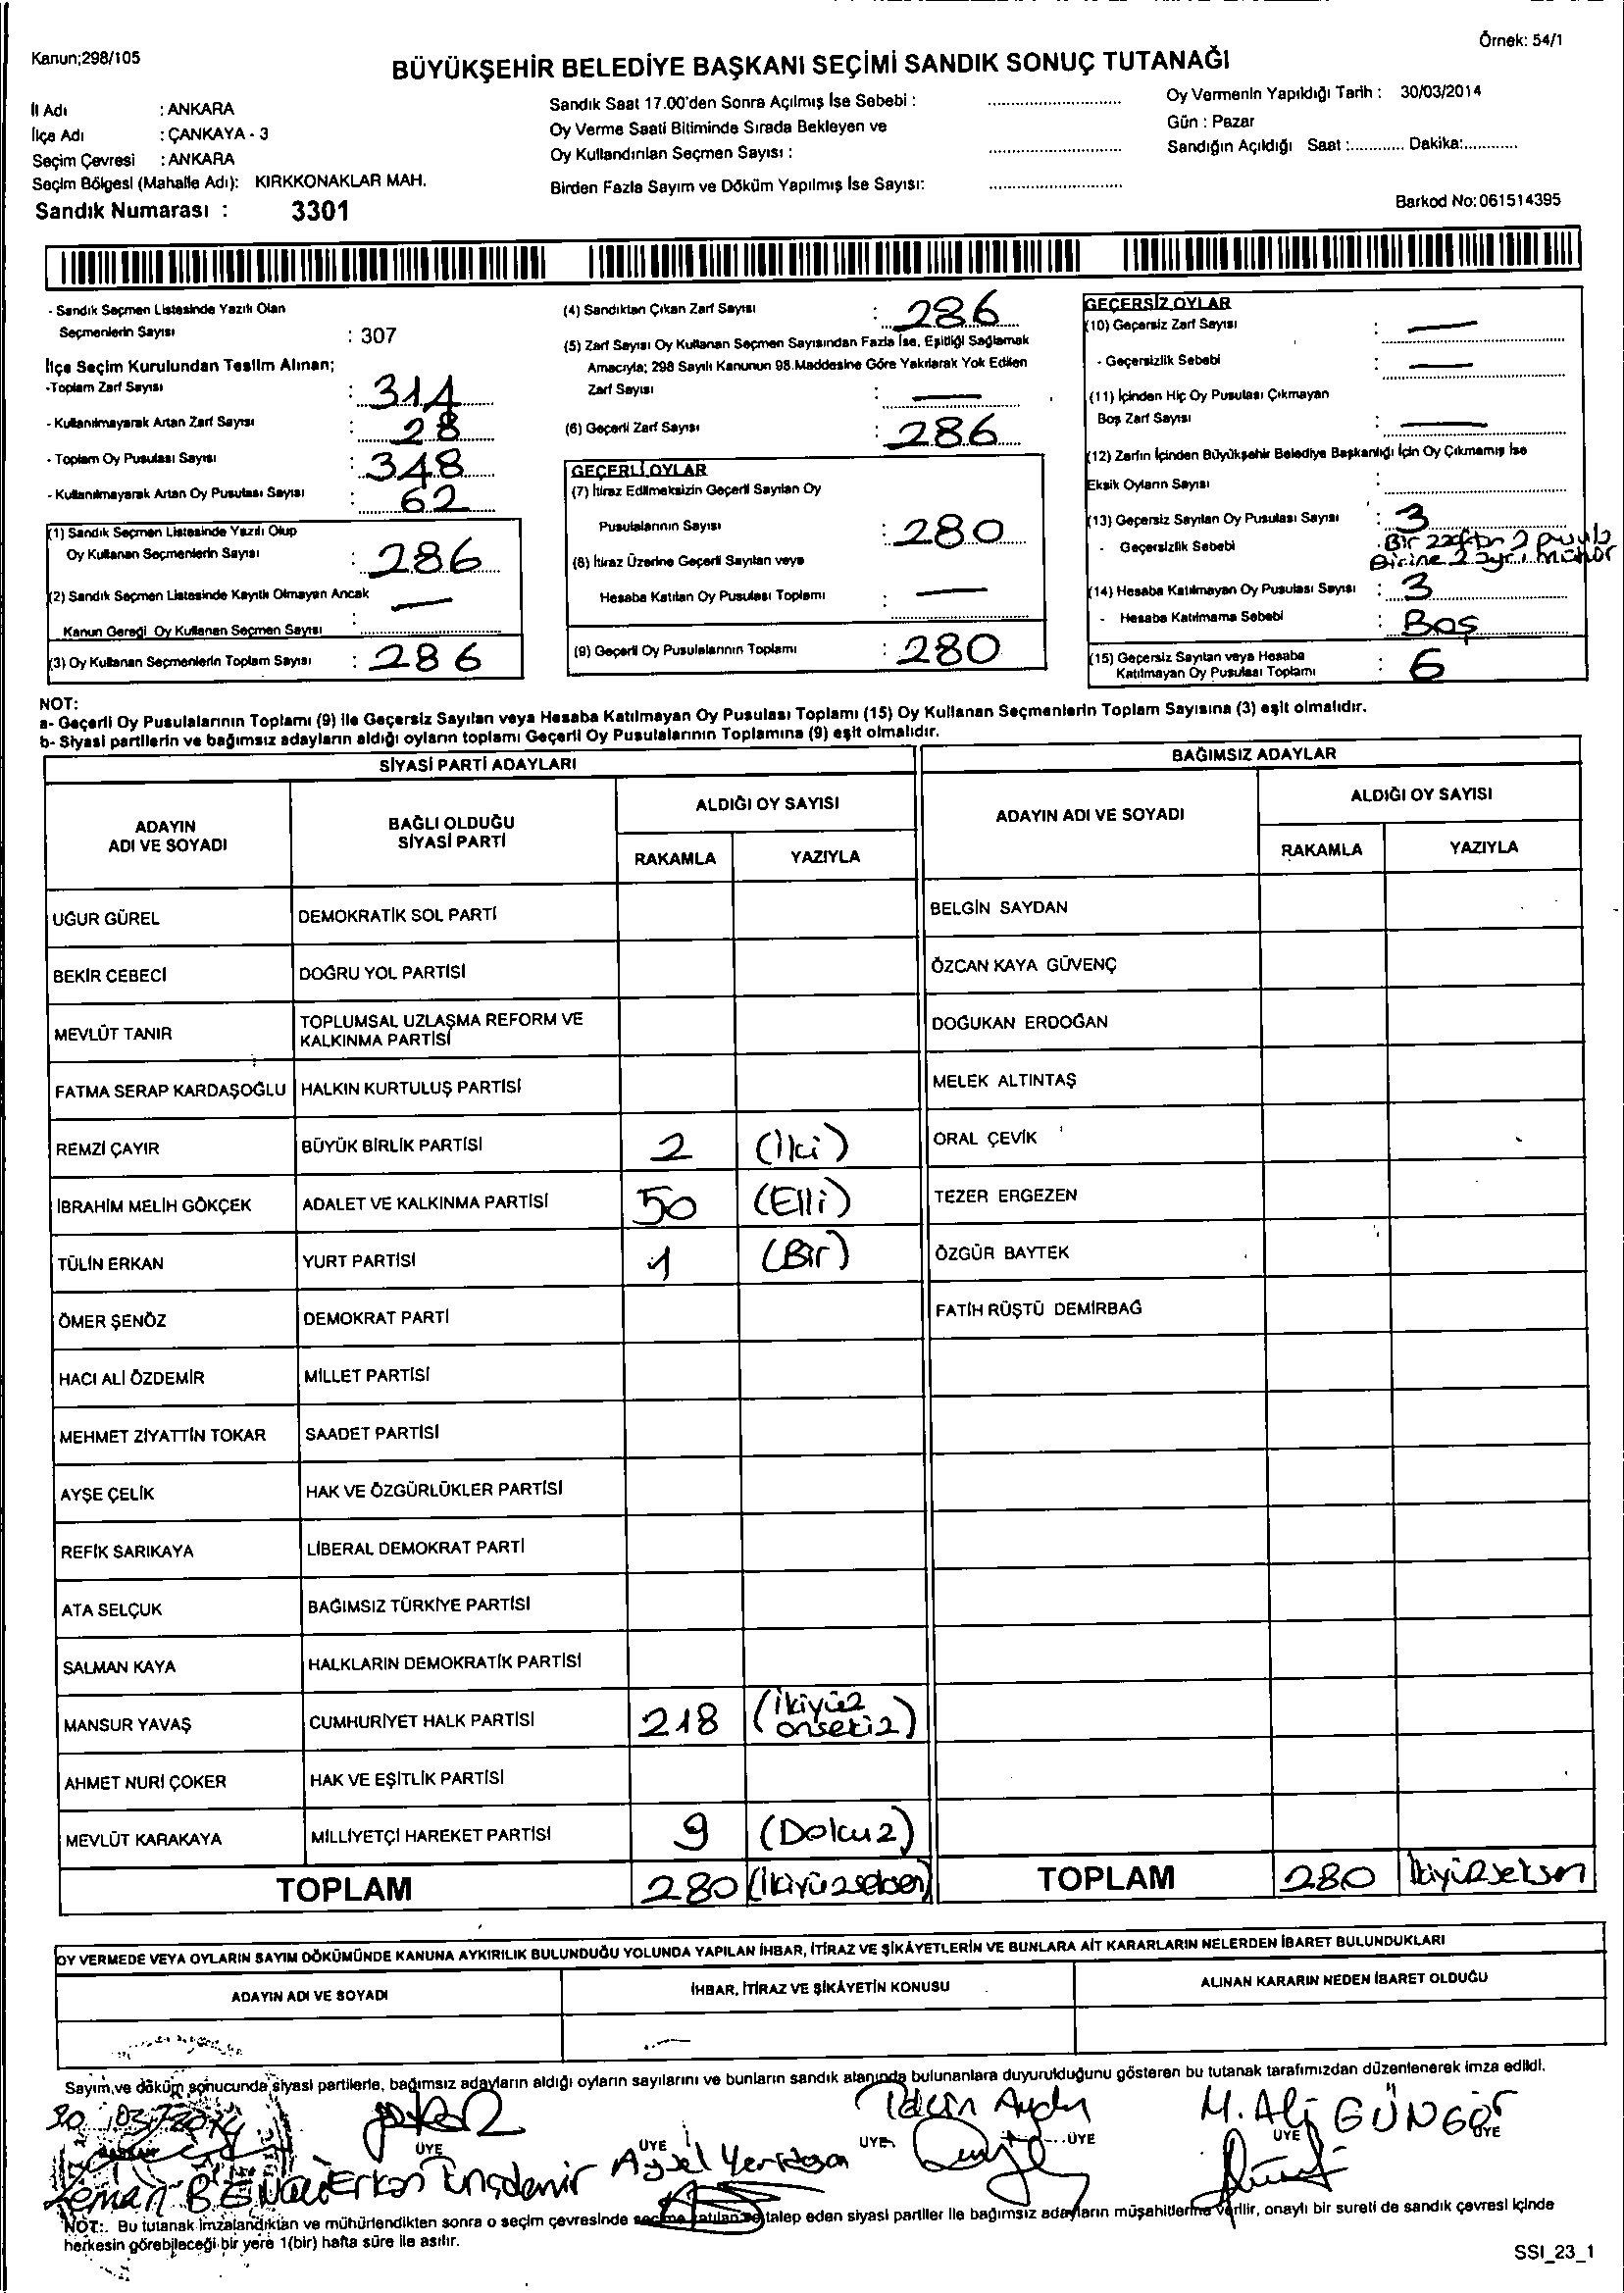 Kanun;298/105
Örnek: 54/1
BÜYÜKŞEHİR BELEDİYE BAŞKANI SEÇİMİ SANDIK SONUÇ TUTANAĞI
İl Adı : ANKARA
İlçe Adı : ÇANKAYA - 3
Seçim Çevresi : ANKARA
Seçim Bölgesi (Mahalle Adı): KIRKKONAKLAR MAH.
Sandık Numarası : 3301
Sandık Saat 17.00'den Sonra Açılmış İse Sebebi :
Oy Verme Saati Bitiminde Sırada Bekleyen ve
Oy Kullandırılan Seçmen Sayısı :
Birden Fazla Sayım ve Döküm Yapılmış İse Sayısı:
Oy Vermenin Yapıldığı Tarih : 30/03/2014
Gün : Pazar
Sandığın Açıldığı Saat :............ Dakika:............
Barkod No:061514395
- Sandık Seçmen Listesinde Yazılı Olan
Seçmenlerin Sayısı : 307
İlçe Seçim Kurulundan Teslim Alınan;
-Toplam Zarf Sayısı : 314
- Kullanılmayarak Artan Zarf Sayısı : 28
- Toplam Oy Pusulası Sayısı : 348
- Kullanılmayarak Artan Oy Pusulası Sayısı : 62
(1) Sandık Seçmen Listesinde Yazılı Olup
Oy Kullanan Seçmenlerin Sayısı : 286
(2) Sandık Seçmen Listesinde Kayıtlı Olmayan Ancak
Kanun Gereği Oy Kullanan Seçmen Sayısı : —
(3) Oy Kullanan Seçmenlerin Toplam Sayısı : 286
(4) Sandıktan Çıkan Zarf Sayısı : 286
(5) Zarf Sayısı Oy Kullanan Seçmen Sayısından Fazla İse, Eşitliği Sağlamak
Amacıyla; 298 Sayılı Kanunun 98.Maddesine Göre Yakılarak Yok Edilen
Zarf Sayısı : —
(6) Geçerli Zarf Sayısı : 286
GEÇERLİ OYLAR
(7) İtiraz Edilmeksizin Geçerli Sayılan Oy
Pusulalarının Sayısı : 280
(8) İtiraz Üzerine Geçerli Sayılan veya
Hesaba Katılan Oy Pusulası Toplamı : —
(9) Geçerli Oy Pusulalarının Toplamı : 280
GEÇERSİZ OYLAR
(10) Geçersiz Zarf Sayısı : —
- Geçersizlik Sebebi : —
(11) İçinden Hiç Oy Pusulası Çıkmayan
Boş Zarf Sayısı : —
(12) Zarfın İçinden Büyükşehir Belediye Başkanlığı İçin Oy Çıkmamış İse
Eksik Oyların Sayısı :
(13) Geçersiz Sayılan Oy Pusulası Sayısı : 3
- Geçersizlik Sebebi : Bir zarftan 2 pusula
Birine 2 ayrı mühür
(14) Hesaba Katılmayan Oy Pusulası Sayısı : 3
- Hesaba Katılmama Sebebi : Boş
(15) Geçersiz Sayılan veya Hesaba
Katılmayan Oy Pusulası Toplamı : 6
NOT:
a- Geçerli Oy Pusulalarının Toplamı (9) ile Geçersiz Sayılan veya Hesaba Katılmayan Oy Pusulası Toplamı (15) Oy Kullanan Seçmenlerin Toplam Sayısına (3) eşit olmalıdır.
b- Siyasi partilerin ve bağımsız adayların aldığı oyların toplamı Geçerli Oy Pusulalarının Toplamına (9) eşit olmalıdır.
SİYASİ PARTİ ADAYLARI
ADAYIN
ADI VE SOYADI
BAĞLI OLDUĞU
SİYASİ PARTİ
ALDIĞI OY SAYISI
RAKAMLA YAZIYLA
UĞUR GÜREL DEMOKRATİK SOL PARTİ
BEKİR CEBECİ DOĞRU YOL PARTİSİ
MEVLÜT TANIR TOPLUMSAL UZLAŞMA REFORM VE
KALKINMA PARTİSİ
FATMA SERAP KARDAŞOĞLU HALKIN KURTULUŞ PARTİSİ
REMZİ ÇAYIR BÜYÜK BİRLİK PARTİSİ 2 (İki)
İBRAHİM MELİH GÖKÇEK ADALET VE KALKINMA PARTİSİ 50 (Elli)
TÜLİN ERKAN YURT PARTİSİ 1 (Bir)
ÖMER ŞENÖZ DEMOKRAT PARTİ
HACI ALİ ÖZDEMİR MİLLET PARTİSİ
MEHMET ZİYATTİN TOKAR SAADET PARTİSİ
AYŞE ÇELİK HAK VE ÖZGÜRLÜKLER PARTİSİ
REFİK SARIKAYA LİBERAL DEMOKRAT PARTİ
ATA SELÇUK BAĞIMSIZ TÜRKİYE PARTİSİ
SALMAN KAYA HALKLARIN DEMOKRATİK PARTİSİ
MANSUR YAVAŞ CUMHURİYET HALK PARTİSİ 218 (İkiyüz
onsekiz)
AHMET NURİ ÇOKER HAK VE EŞİTLİK PARTİSİ
MEVLÜT KARAKAYA MİLLİYETÇİ HAREKET PARTİSİ 9 (Dokuz)
TOPLAM 280 (İkiyüzseksen)
BAĞIMSIZ ADAYLAR
ADAYIN ADI VE SOYADI
ALDIĞI OY SAYISI
RAKAMLA YAZIYLA
BELGİN SAYDAN
ÖZCAN KAYA GÜVENÇ
DOĞUKAN ERDOĞAN
MELEK ALTINTAŞ
ORAL ÇEVİK
TEZER ERGEZEN
ÖZGÜR BAYTEK
FATİH RÜŞTÜ DEMİRBAĞ
TOPLAM 280 İkiyüzseksen
OY VERMEDE VEYA OYLARIN SAYIM DÖKÜMÜNDE KANUNA AYKIRILIK BULUNDUĞU YOLUNDA YAPILAN İHBAR, İTİRAZ VE ŞİKÂYETLERİN VE BUNLARA AİT KARARLARIN NELERDEN İBARET BULUNDUKLARI
ADAYIN ADI VE SOYADI
İHBAR, İTİRAZ VE ŞİKÂYETİN KONUSU
ALINAN KARARIN NEDEN İBARET OLDUĞU
Sayım ve döküm sonucunda siyasi partilerle, bağımsız adayların aldığı oyların sayılarını ve bunların sandık alanında bulunanlara duyurulduğunu gösteren bu tutanak tarafımızdan düzenlenerek imza edildi.
30.03.2014
M. Ali GÜNGÖR
ÜYE ÜYE ÜYE ÜYE ÜYE ÜYE
Aysel
NOT:. Bu tutanak imzalandıktan ve mühürlendikten sonra o seçim çevresinde seçime katılan ve talep eden siyasi partiler ile bağımsız adayların müşahitlerine verilir, onaylı bir sureti de sandık çevresi içinde
herkesin görebileceği bir yere 1(bir) hafta süre ile asılır.
SSI_23_1